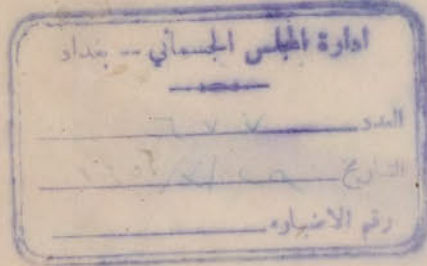 ادارة المجلس الجسماني -- بغداد
العدد ٦٧٧
التاريخ
رقم الاضباره